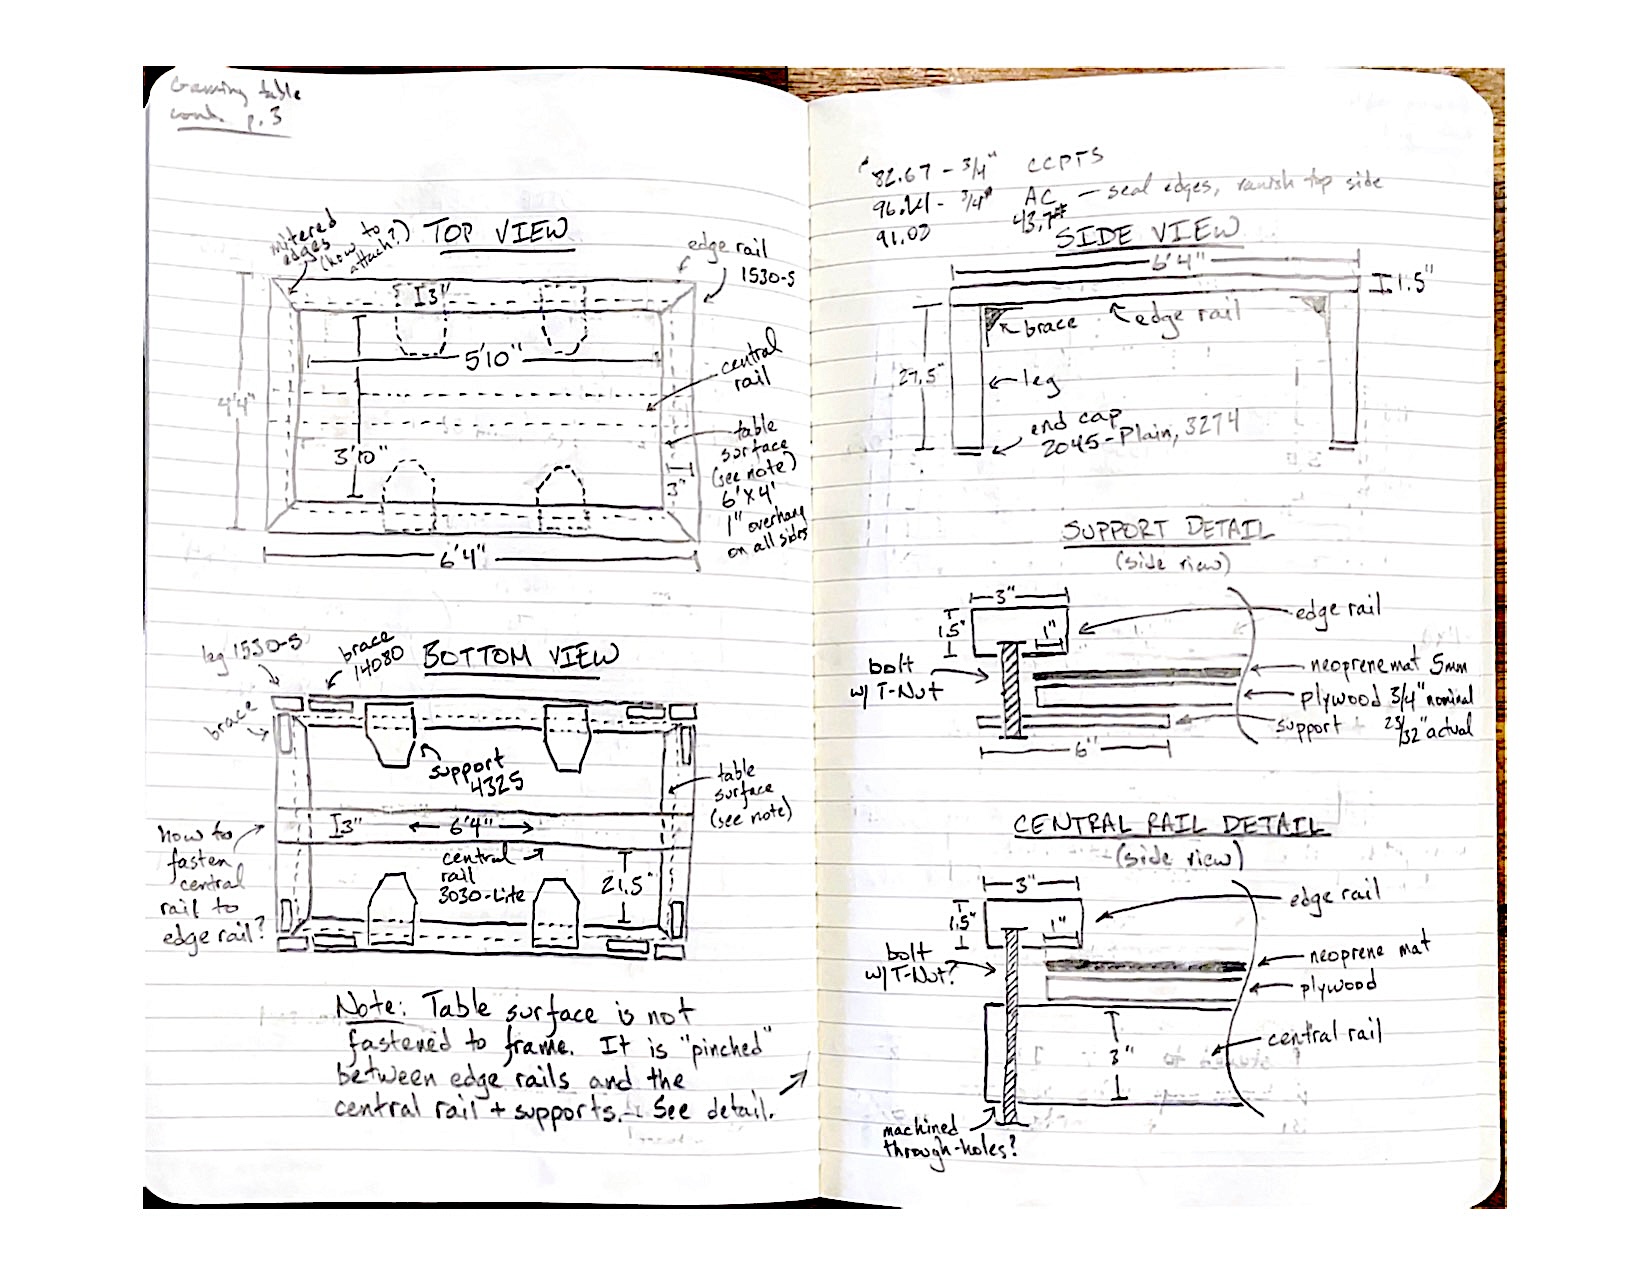 Gaming table
cont. p. 3
mitered
edges
(how to
attach?)
TOP VIEW
edge rail
1530-S
3"
5'10"
central
rail
4'4"
3'10"
table
surface
(see note)
6'X4'
1" overhang
on all sides
3"
6'4"
leg 1530-S
brace
14080
BOTTOM VIEW
brace
support
4325
table
surface
(see note)
3"
6'4"
how to
fasten
central
rail to
edge rail?
central
rail
3030-Lite
21.5"
Note: Table surface is not
fastened to frame. It is "pinched"
between edge rails and the
central rail + supports. See detail.
82.67 - 3/4" CCPTS
3/4" AC - seal edges, varnish top side
91.03
43.7#
SIDE VIEW
6'4"
1.5"
brace
edge rail
27.5"
leg
end cap
2045-Plain, 3274
SUPPORT DETAIL
(side view)
3"
1.5"
1"
edge rail
bolt
w/ T-Nut
neoprene mat 5mm
plywood 3/4" nominal
support 23/32" actual
6"
CENTRAL RAIL DETAIL
(side view)
3"
1.5"
1"
edge rail
bolt
w/ T-Nut?
neoprene mat
plywood
3"
central rail
machined
through-holes?